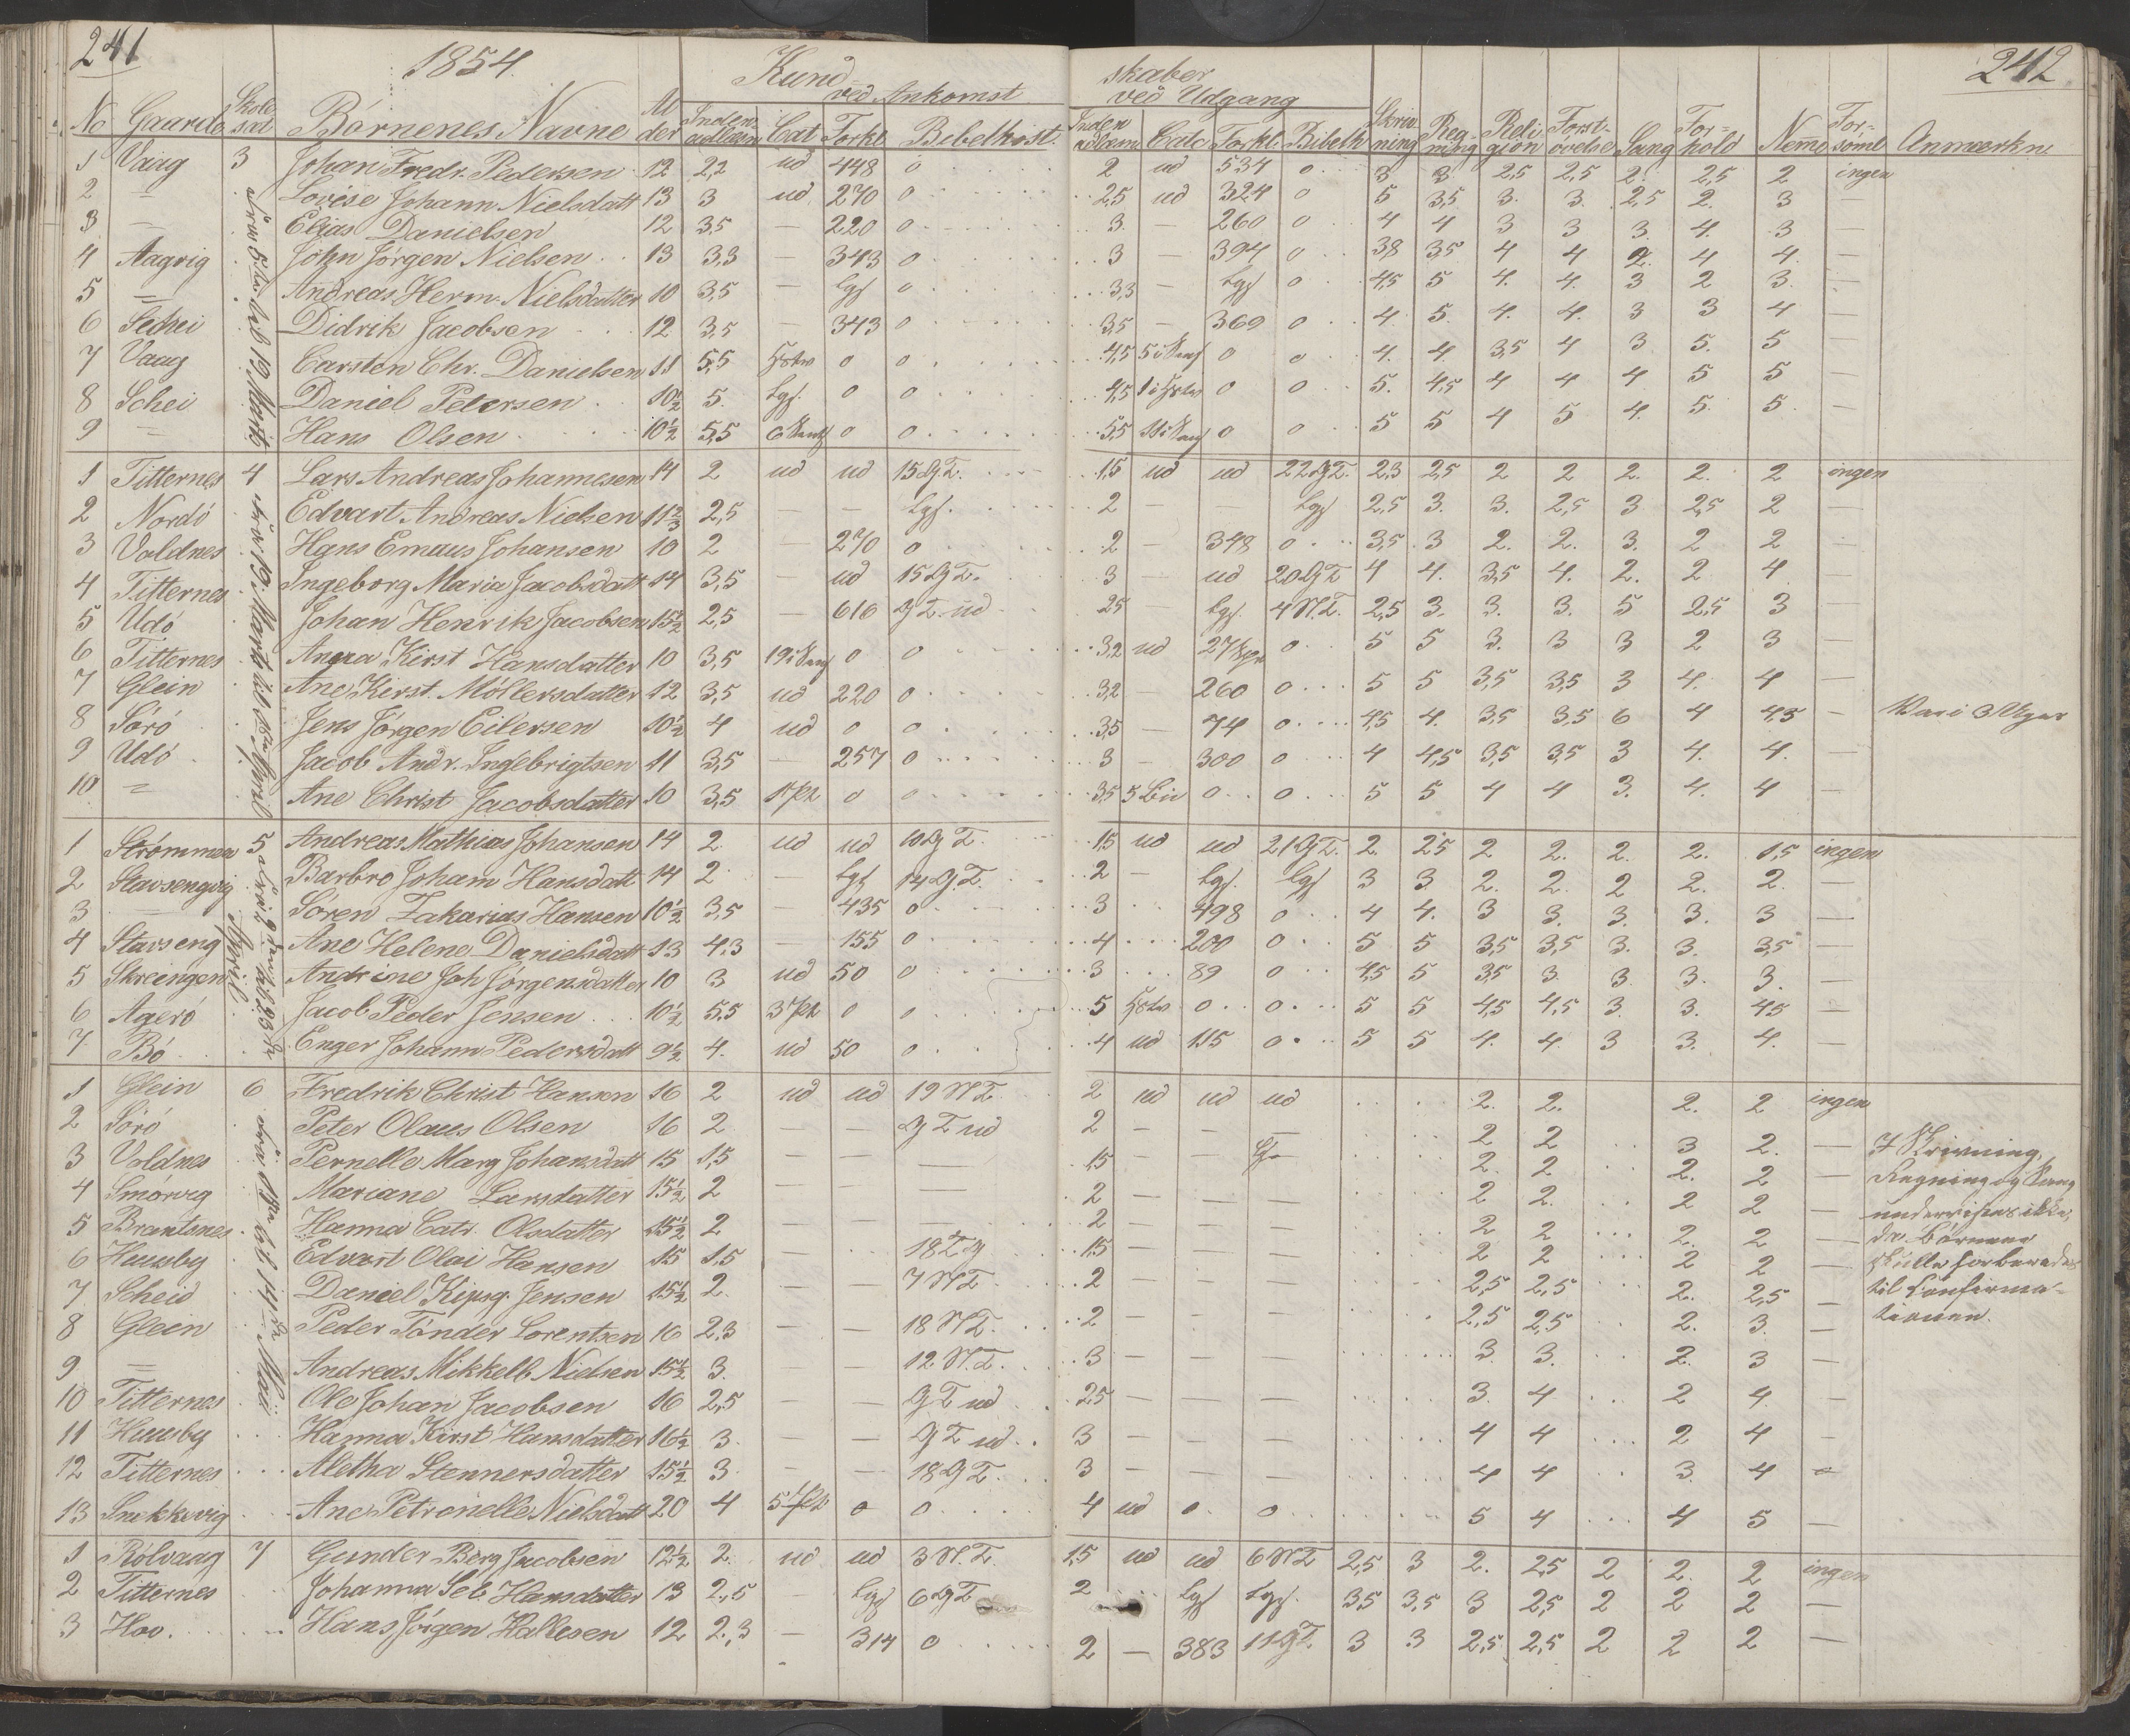 241 1854. Kund skaber 242
ved Ankomst ved Udgang
No Gaarde Skole sæt Börnenes Navne Al der Inden adlæsn Cat Forkl. Bebelhist. Inden adlæsn Catc Forkl. Bibelh Skriv- ning Reg- ning Reli- gion Forst- øvelse Sang For- hold Nemme For- sömt Anmærkn.
1 Vaag 3 Johan Fredr. Pedersen 12 2,2 ud 448 0 2 ud 534 0 3 3 2,5 2,5 2. 2,5 2 ingen
2 — Lovise Johann Nielsdatt 13 3 ud 270 0 2,5 ud 324 0 5 3,5 3. 3. 2,5 2. 3 —
3 — Elias Danielsen 12 3,5 — 220 0 3. — 260 0 4 4 3 3 3. 4. 3 —
4 Aagvig John Jörgen Nielsen 13 3,3 — 343 0 3 — 394 0 3,8 3,5 4 4 2. 4 4. —
5 — Andreas Herm. Nielsdatter 10 3,5 — Lgf 0 3,3 — Lgf 0 4,5 5 4. 4. 3 2 3. —
6 Schei Didrik Jacobsen 12 3,5 — 343 0 3,5 — 369 0 4 5. 4. 4. 3 3 4 —
7 Vaag Carsten Chr. Danielsen 11 5,5 0 0 4,5 0 0 4. 4. 3,5 4 3 5. 5 —
8 Schei Daniel Petersen 10½ 5. Lgf. 0 0 4,5 0 0 5. 4,5 4 4 4 5 5 —
9 — Hans Olsen 10½ 5,5 0 0 5,5 0 0 5 5 4 5 4. 5. 5. —
fra 5te til 19. Marts
1 Titternes 4 Lars Andreas Johannesen 14 2 ud ud 15 G.T. 1,5 ud ud 22 G.T. 2,3 2,5 2 2 2. 2. 2 ingen
2 Nordö Edvart Andreas Nielsen 11⅔ 2,5 — Lgf. 2 — — Lgf 2,5 3. 3. 2,5 3 2,5 2 —
3 Voldnes Hans Emaus Johansen 10 2 — 270 0 2 — 348 0 3,5 3 2. 2. 3. 2 2 —
4 Titternes Ingeborg Maria Jacobsdatt 14 3,5 — ud 15 G.T. 3 ud 20 G.T 4 4. 3,5 4. 2. 2 4 —
5 Udö Johan Henrik Jacobsen 15½ 2,5 — 616 G.T. ud 2,5 Lgf. 4 N.T. 2,5 3. 3. 3. 5 2,5 3 —
6 Titternes Anna Kirst Hansdatter 10 3,5 0 0 3,2 ud 0 5 5 3. 3 3 2 3 —
7 Glein Ane Kirst. Möllersdatter 12 3,5 ud 220 0 3,2 — 260 0 5 5 3,5 3,5 3 4. 4 —
8 Sörö Jens Jörgen Eilersen 10½ 4 ud 0 0 3,5 — 74 0 4,5 4. 3,5 3,5 6 4 4,5 — Var i 3 Uger
9 Udö Jacob Andr. Ingebrigtsen 11 3,5 — 257 0 3 — 300 0 4 4,5 3,5 3,5 3 4. 4. —
10 — Ane Christ Jacobsdatter 10 3,5 0 0 3,5 0 0 5 5 4 4 3. 4. 4 —
fra 19. Marts til 18de April
1 Strömmen 5 Andreas Mathias Johansen 14 2. ud ud 10 G T. 1,5 ud ud 21 G.T. 2. 2,5 2 2. 2. 2. 1,5 ingen
2 Stavsengvig Barbro Joham Hansdatt 14 2 — Lgf 14 G.T. 2 — Lgf. Lgf 3 3 2. 2. 2 2. 2. —
3 — Sören Zakarias Hansen 10½ 3,5 — 435 0 3 498 0 4 4. 3 3. 3. 3. 3 —
4 Stavseng Ane Helene Danielsdatt 13 4,3 — 155 0 4 200 0 5 5 3,5 3,5 3. 3. 3,5 —
5 Skreingen Andrine Joh Jörgensdatter 10 3 ud 50 0 3 89 0 4,5 5 3,5 3. 3. 3. 3. —
6 Agerö Jacob Peder Jensen 10½ 5,5 0 0 5 0 0 5 5 4,5 4,5 3. 3. 4,5 —
7. Bö Enger Johann Pedersdatt 9½ 4. ud 50 0 4 ud 115 0 5 5 4. 4. 3 3. 4. —
April
1 Glein 6 Fredrik Christ Hansen 16 2 ud ud 19 N.T. 2 ud ud ud 2. 2. 2. 2 ingen
2 Sörö Peter Olaus Olsen 16 2 — — G T ud 2 — — — 2 2 3 2. —
3 Voldnes Pernelle Marg Johansdatt 15 1,5 — — — 1,5 — — 2. 2. 2. 2 —
4 Smörvig Mariane Larsdatter 15½ 2 — — — 2 — — — 2 2. 2 2 —
5 Brantsnes Hanna Catr. Olsdatter 15½ 2 — — — 2 — — — 2 2 2. 2 —
6 Huusby Edvart Olai Hansen 15 1,5 18 T G 1,5 — — — 2 2 2 2 —
7 Scheid Daniel Kipsg. Jensen 15½ 2. — — 7 N.T. 2 — — — 2,5 2,5 2. 2,5 —
8 Glein Peder Tönder Lorentsen 16 2,3 — — 18 N.T. 2 — — — 2,5 2,5 2. 3. —
9. — Andreas Mikkelb Nielsen 15½ 3. — — 12 N.T. 3 — — — 3. 3. 2. 3 —
10 Titternes Ole Johan Jacobsen 16 2,5 — — G T ud 2,5 — — — 3. 4 2 4. —
11 Huusby Hanna Kirst Hansdatter 16½ 3. — — G T ud 3 — — — 4 4 2 4 —
12 Titternes Aletha Stennersdatter 15½ 3. — — 18 G T. 3 — — — 4 4 3. 4 —
13 Snekkevig Ane Petronelle Nielsdatt 20 4 0 0 4 ud 0 0 5 4 4 5 —
til 14de Mai
I Skrivning,
Regning og Sang
undervises ikke,
da Börnene
skulle forberedes
til Confirma-
tionen.
1 Rölvaag 7 Gunder Berg Jacobsen 12½ 2. ud ud 3 N.T. 1,5 ud ud 6 N T 2,5 3 2. 2,5 2 2. 2 ingen
2 Titternes Johanna Sel. Hansdatter 13 2,5 — Lgf 6 G T 2 Lgf Lgf. 3,5 3,5 3 2,5 2 2 2 —
3 Hov. Hans Jörgen Hallesen 12 2,3 — 314 0 2 — 383 11 G T. 3 3 2,5 2,5 2 2 2 —